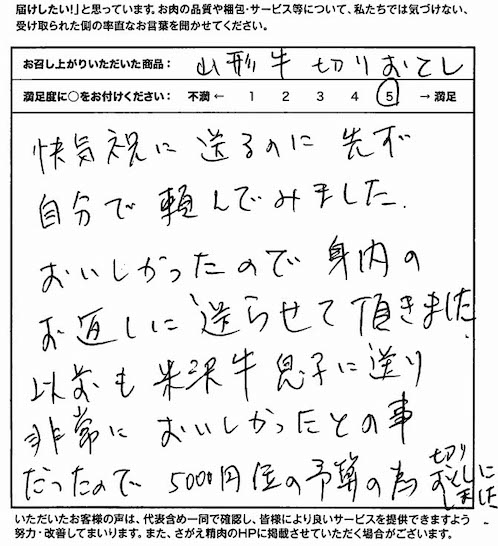 届けしたい!」と思っています。お肉の品質や梱包・サービス等について、私たちでは気づけない、
受け取られた側の率直なお言葉を聞かせてください。
お召し上がりいただいた商品: 山形牛 切りおとし
満足度に○をお付けください: 不満 ← 1 2 3 4 5 → 満足
快気祝に送るのに先ず
自分で頼んでみました.
おいしかったので身内の
お返しに送らせて頂きました.
以前も米沢牛息子に送り
非常においしかったとの事
だったので 5000円位の予算の為 切りおとしにしました
いただいたお客様の声は、代表含め一同で確認し、皆様により良いサービスを提供できますよう
努力・改善してまいります。また、さがえ精肉のHPに掲載させていただく場合がございます。